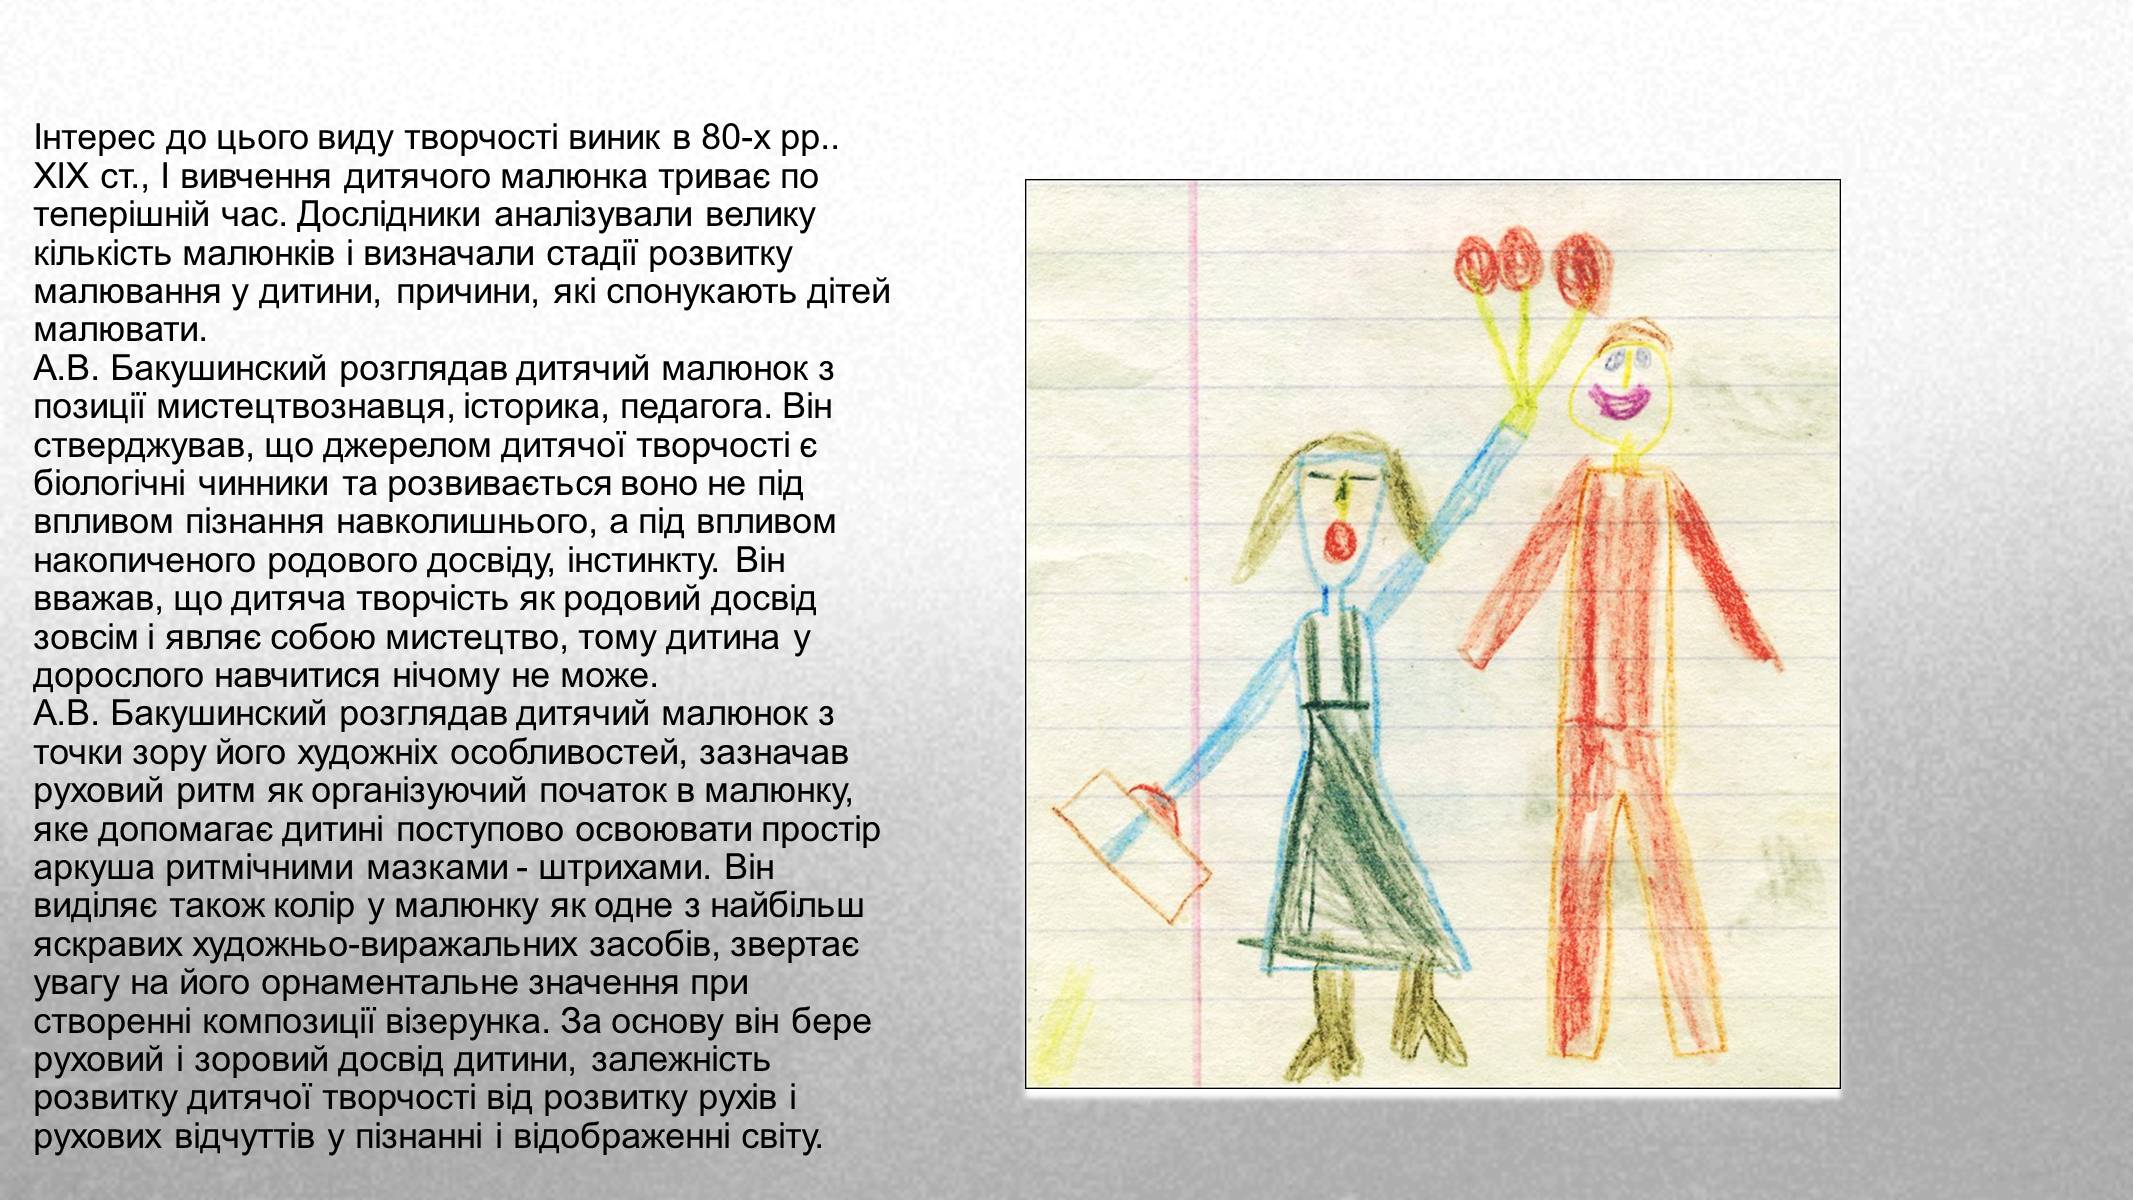 Інтерес до цього виду творчості виник в 80-х рр..
XIX ст., І вивчення дитячого малюнка триває по
теперішній час. Дослідники аналізували велику
кількість малюнків і визначали стадії розвитку
малювання у дитини, причини, які спонукають дітей
малювати.
А.В. Бакушинский розглядав дитячий малюнок з
позиції мистецтвознавця, історика, педагога. Він
стверджував, що джерелом дитячої творчості є
біологічні чинники та розвивається воно не під
впливом пізнання навколишнього, а під впливом
накопиченого родового досвіду, інстинкту. Він
вважав, що дитяча творчість як родовий досвід
зовсім і являє собою мистецтво, тому дитина у
дорослого навчитися нічому не може.
А.В. Бакушинский розглядав дитячий малюнок з
точки зору його художніх особливостей, зазначав
руховий ритм як організуючий початок в малюнку,
яке допомагає дитині поступово освоювати простір
аркуша ритмічними мазками - штрихами. Він
виділяє також колір у малюнку як одне з найбільш
яскравих художньо-виражальних засобів, звертає
увагу на його орнаментальне значення при
створенні композиції візерунка. За основу він бере
руховий і зоровий досвід дитини, залежність
розвитку дитячої творчості від розвитку рухів і
рухових відчуттів у пізнанні і відображенні світу.